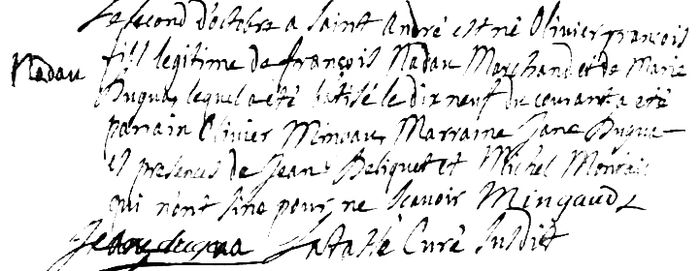 Le second d'octobre a Saint André est né Olivier françois
Nadau
fils legitime de françois Nadau Marchand et de Marie
Dugua, lequel a été batisé le dix neuf du courant a eté
parain Olivier Mingau, Marraine Jane Dugua
es presences de Jean Beliquet et Michel
qui n'ont siné pour ne scavoir Mingaud
Curé Susdit